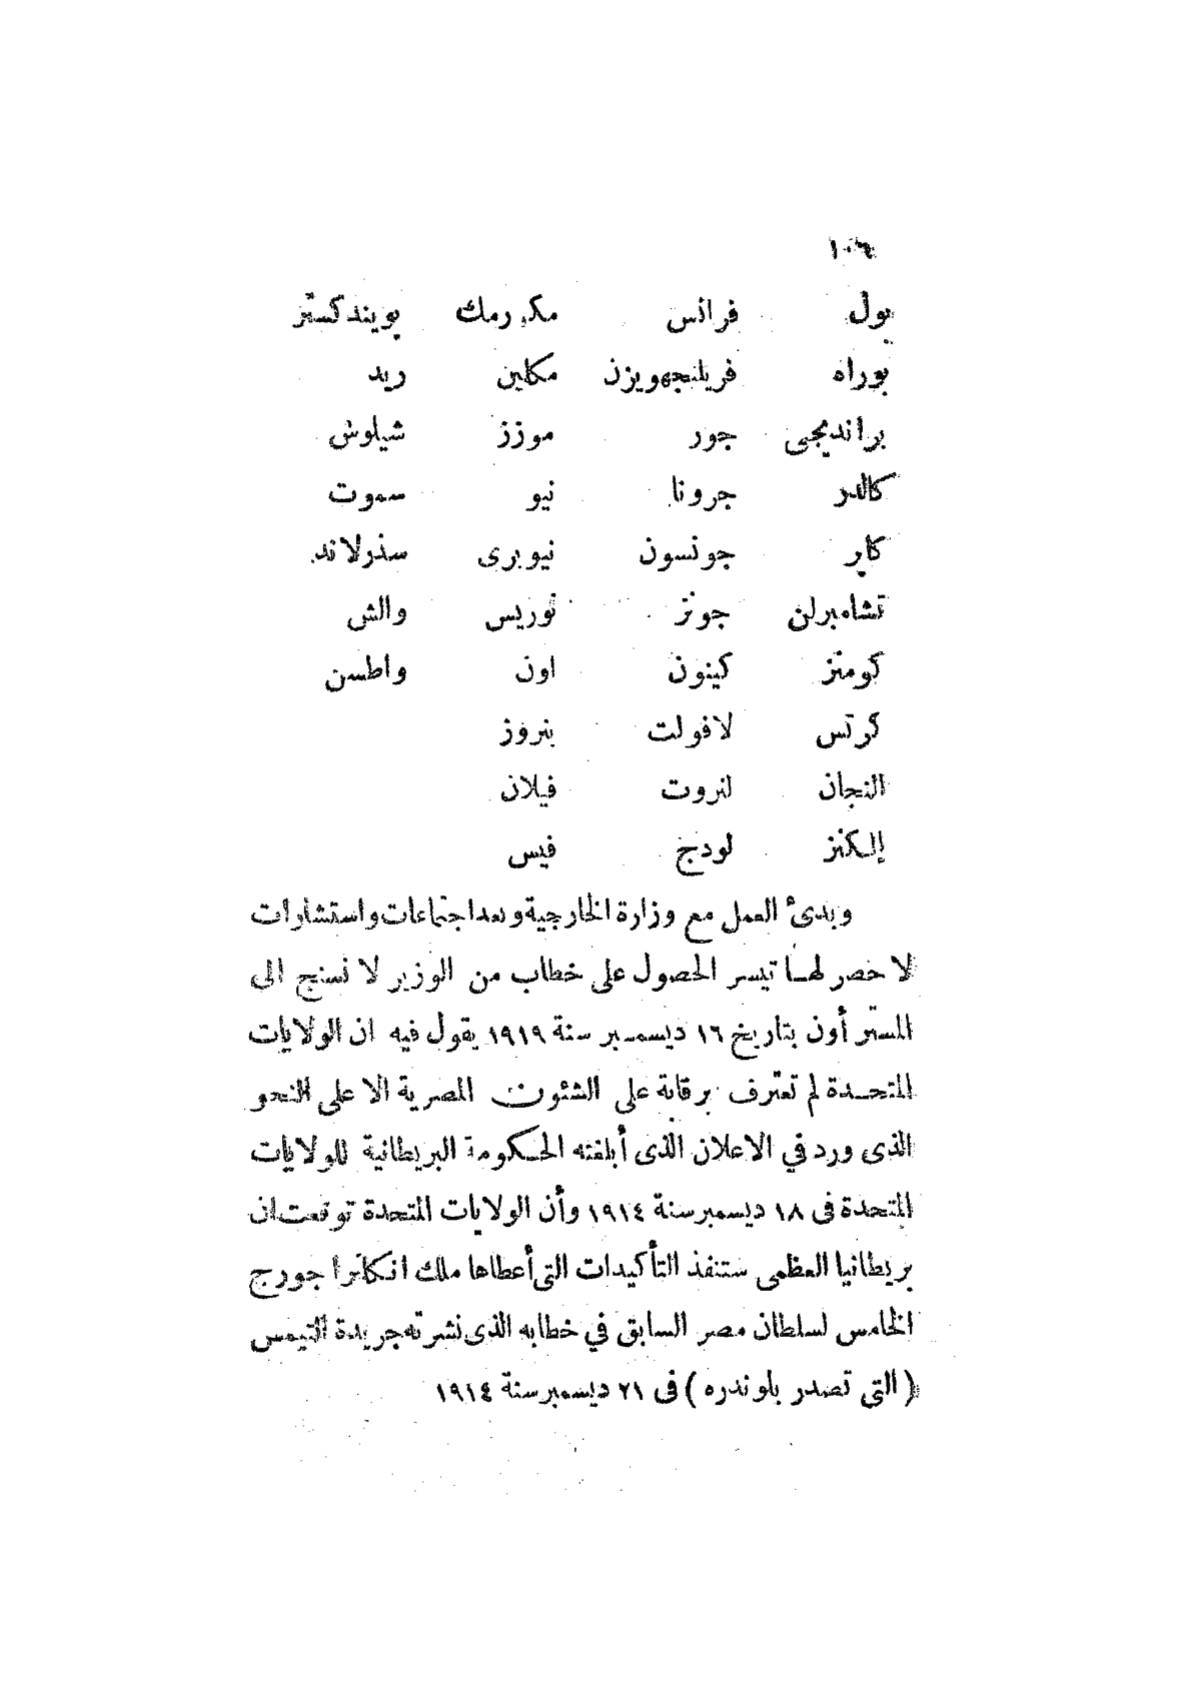 ١٠٦
بول فرانس مكورمك پويندكستر
بوراه فريلنجهويزن مكلين ريد
براندمجى جور موزز شيلوش
كالدر جرونا نيو سموت
كاپر جونسون نيوبرى سذرلاند
تشامبرلن جونز نوريس والش
كومنز كينون اون واطسن
كرتس لافولت بنروز
النجان لنروت فيلان
إلكنز لودج فيس
وبدئ العمل مع وزارة الخارجية وبعد اجتماعات واستشارات
لا حصر لهـا تيسر الحصول على خطاب من الوزير لانسنج الى
المستر أون بتاريخ ١٦ ديسمبر سنة ١٩١٩ يقول فيه ان الولايات
المتحـدة لم تعترف برقابة على الشئون المصرية الا على النحو
الذى ورد في الاعلان الذى أبلغته الحكومة البريطانية للولايات
المتحدة فى ١٨ ديسمبر سنة ١٩١٤ وأن الولايات المتحدة توقعت ان
بريطانيا العظمى ستنفذ التأكيدات التى أعطاها ملك انكلترا جورج
الخامس لسلطان مصر السابق في خطابه الذى نشرته جريدة التيمس
( التى تصدر بلوندره ) فى ٢١ ديسمبر سنة ١٩١٤